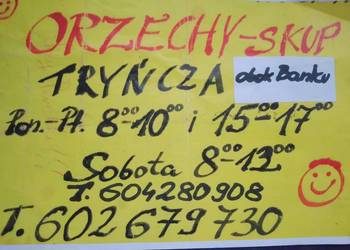 ORZECHY-SKUP
TRYŃCZA obok Banku
Pon.-Pt. 8⁰⁰-10⁰⁰ i 15⁰⁰-17⁰⁰
Sobota 8⁰⁰-12⁰⁰
T. 604280908
T. 602 679 730